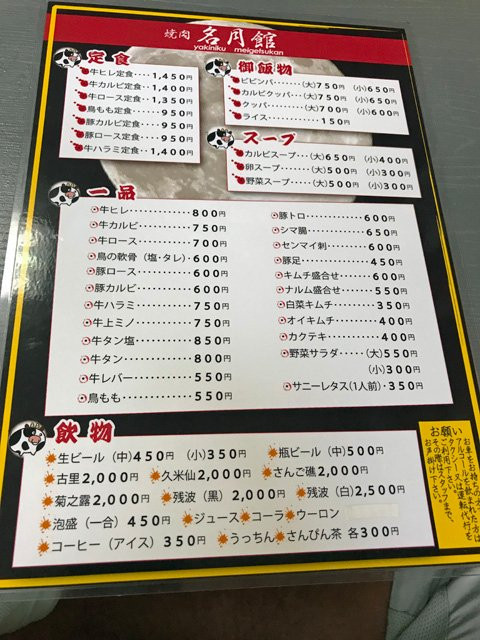 焼肉 名月館
yakiniku meigetsukan
定食
牛ヒレ定食・・・1,450円
牛カルビ定食・・1,400円
牛ロース定食・・1,350円
鳥もも定食・・・・950円
豚カルビ定食・・・950円
豚ロース定食・・・950円
牛ハラミ定食・・1,400円
御飯物
ビビンバ・・・・・(大)750円 (小)650円
カルビクッパ・・・(大)750円 (小)650円
クッパ・・・・・・(大)700円 (小)600円
ライス・・・・・・・・150円
スープ
カルビスープ・・・(大)650円 (小)400円
卵スープ・・・・・(大)500円 (小)300円
野菜スープ・・・・(大)500円 (小)300円
一品
牛ヒレ・・・・・・・・・・・800円
牛カルビ・・・・・・・・・・750円
牛ロース・・・・・・・・・・700円
鳥の軟骨（塩・タレ）・600円
豚ロース・・・・・・・・・・600円
豚カルビ・・・・・・・・・・600円
牛ハラミ・・・・・・・・・・750円
牛上ミノ・・・・・・・・・・750円
牛タン塩・・・・・・・・・・850円
牛タン・・・・・・・・・・・800円
牛レバー・・・・・・・・・・550円
鳥もも・・・・・・・・・・・550円
豚トロ・・・・・・・・・・600円
シマ腸・・・・・・・・・・650円
センマイ刺・・・・・・・・600円
豚足・・・・・・・・・・・450円
キムチ盛合せ・・・・・・600円
ナルム盛合せ・・・・・・550円
白菜キムチ・・・・・・・350円
オイキムチ・・・・・・・400円
カクテキ・・・・・・・・400円
野菜サラダ・・・(大)550円
(小)300円
サニーレタス(1人前)・350円
飲物
生ビール（中）450円 (小)350円 瓶ビール（中）500円
古里2,000円 久米仙2,000円 さんご礁2,000円
菊之露2,000円 残波（黒）2,000円 残波（白）2,500円
泡盛（一合）450円 ジュース コーラ ウーロン
コーヒー（アイス）350円 うっちん さんぴん茶 各300円
お願い
お車をお持ちの方で
アルコールを飲まれた方は
タクシー又は運転代行を
ご利用下さい。
その際はスタッフまで、
お声掛け下さい。